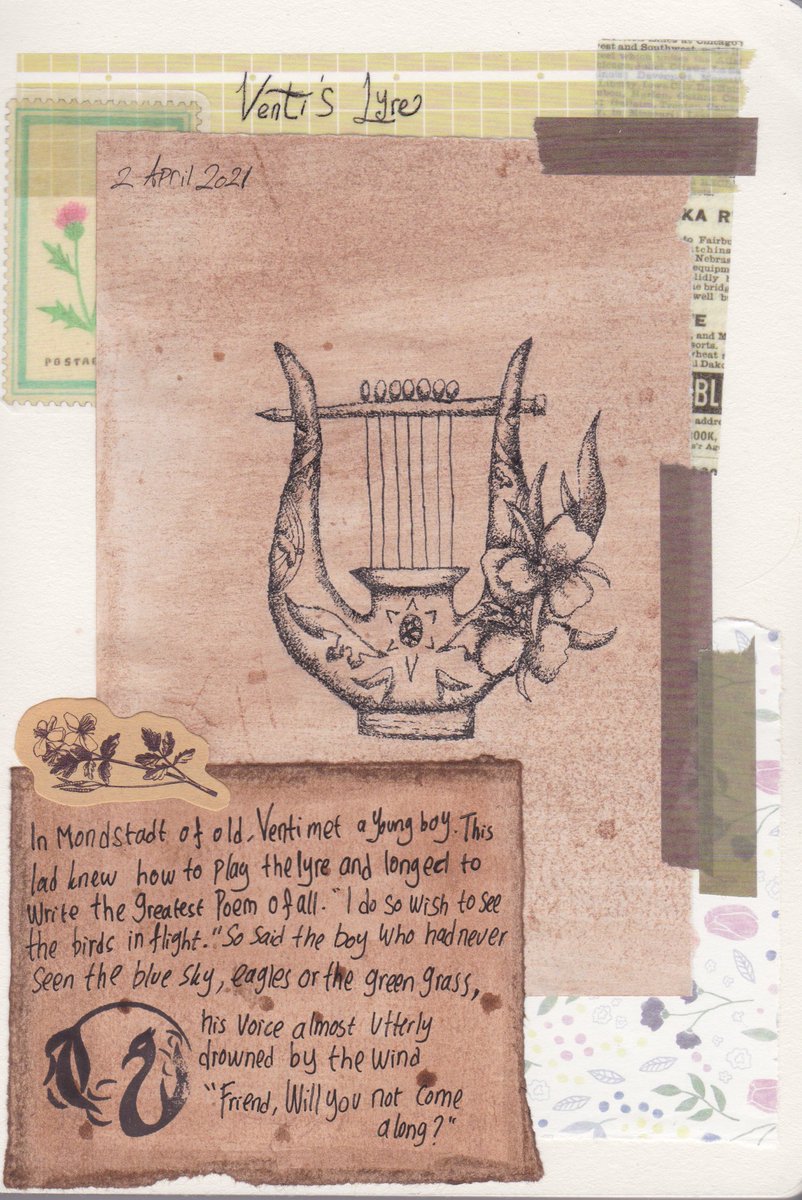 Venti's Lyre
2 April 2021
POSTAG
est and Southwest
KA R
to Fairb
tchins
Nebras
equipm
lidly b
he bridg
well b
TE
, and M
sorts.
wheat
l Dako
BL
addre
OOK,
r's Ag
In Mondstadt of old, Venti met a young boy. This
lad knew how to play the lyre and longed to
write the greatest Poem of all. "I do so wish to see
the birds in flight." So said the boy who had never
seen the blue sky, eagles or the green grass,
his voice almost utterly
drowned by the wind
"Friend, Will you not come
along?"